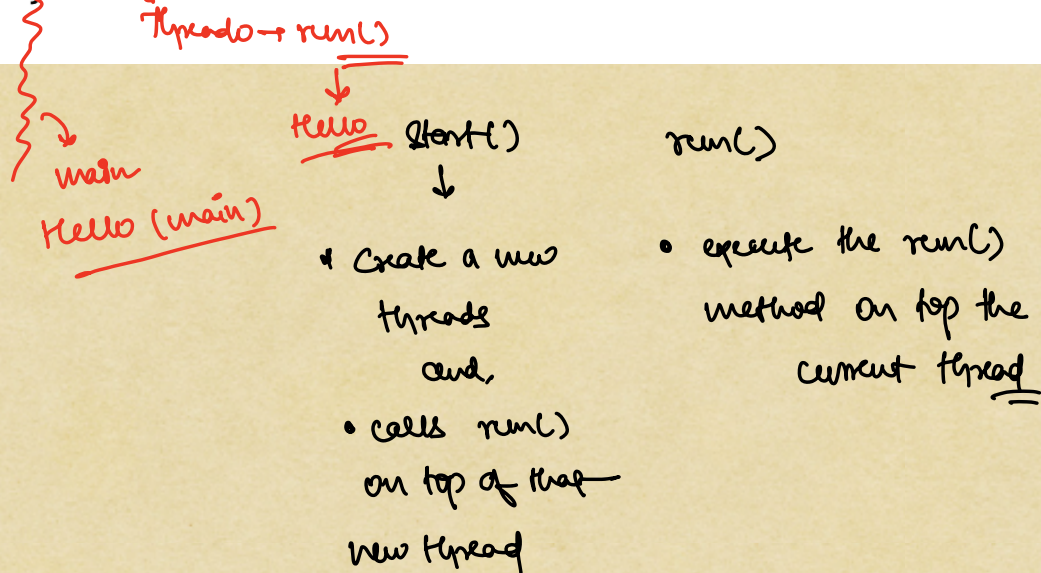 Thread0 → run()
Hello
main
Hello (main)
start()
run()
* Create a new
threads
and,
• calls run()
on top of that
new thread
• execute the run()
method on top the
current thread